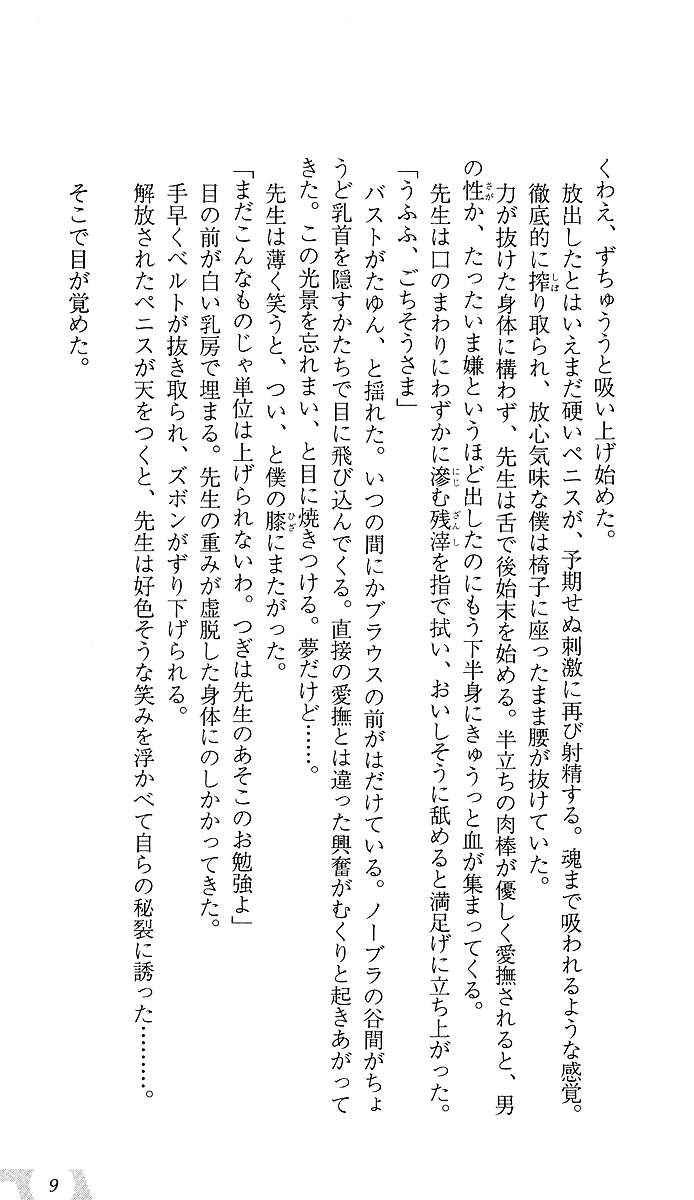 くわえ、ずちゅううと吸い上げ始めた。
放出したとはいえまだ硬いペニスが、予期せぬ刺激に再び射精する。魂まで吸われるような感覚。
徹底的に搾り取られ、放心気味な僕は椅子に座ったまま腰が抜けていた。
力が抜けた身体に構わず、先生は舌で後始末を始める。半立ちの肉棒が優しく愛撫されると、男
の性か、たったいま嫌というほど出したのにもう下半身にきゅうっと血が集まってくる。
先生は口のまわりにわずかに滲む残滓を指で拭い、おいしそうに舐めると満足げに立ち上がった。
「うふふ、ごちそうさま」
バストがたゆん、と揺れた。いつの間にかブラウスの前がはだけている。ノーブラの谷間がちょ
うど乳首を隠すかたちで目に飛び込んでくる。直接の愛撫とは違った興奮がむくりと起きあがって
きた。この光景を忘れまい、と目に焼きつける。夢だけど……。
先生は薄く笑うと、つい、と僕の膝にまたがった。
「まだこんなものじゃ単位は上げられないわ。つぎは先生のあそこのお勉強よ」
目の前が白い乳房で埋まる。先生の重みが虚脱した身体にのしかかってきた。
手早くベルトが抜き取られ、ズボンがずり下げられる。
解放されたペニスが天をつくと、先生は好色そうな笑みを浮かべて自らの秘裂に誘った………。
そこで目が覚めた。
9